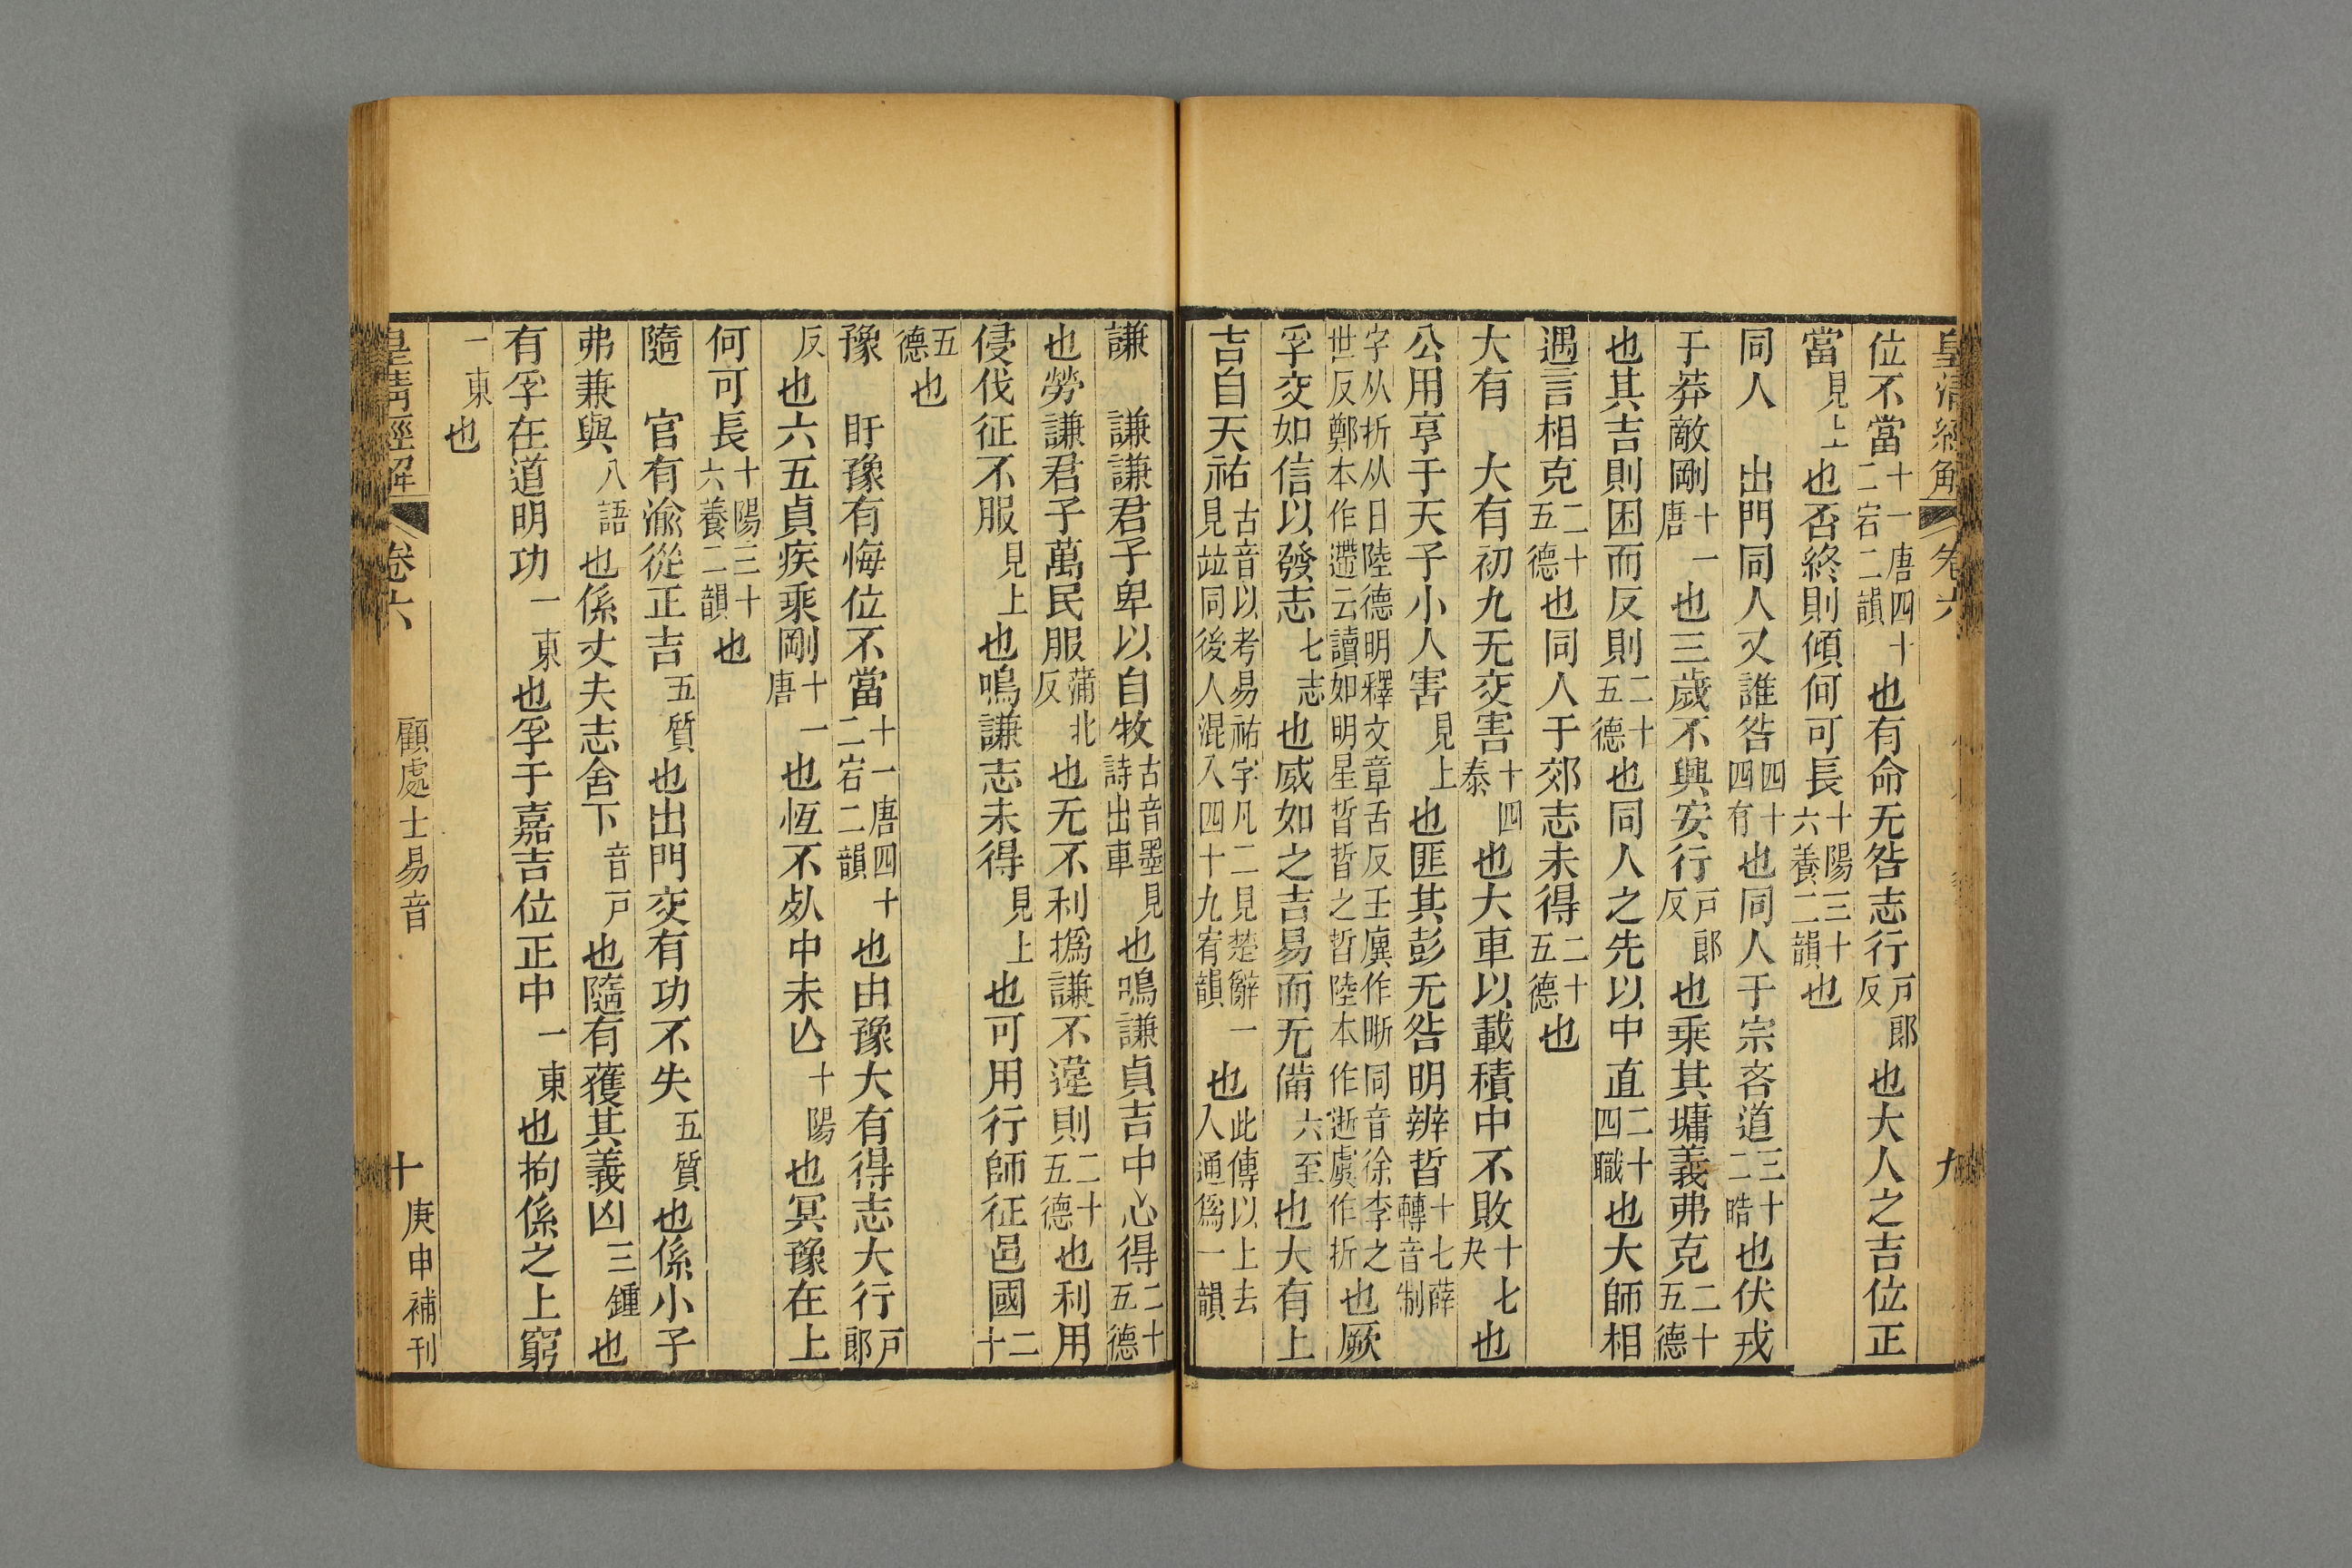 皇清經解 卷六 九
位不當十一唐四十二宕二韻也有命无咎志行戸郎反也大人之吉位正
當見上也否終則傾何可長十陽三十六養二韻也
同人 出門同人又誰咎四十四有也同人于宗吝道三十二晧也伏戎
于莽敵剛十一唐也三歲不興安行戸郎反也乘其墉義弗克二十五德
也其吉則困而反則二十五德也同人之先以中直二十四職也大師相
遇言相克二十五德也同人于郊志未得二十五德也
大有 大有初九无交害十四泰也大車以載積中不敗十七夬也
公用亨于天子小人害見上也匪其彭无咎明辨晢十七薛轉音制
字从折从日陸德明釋文章舌反王廙作晣同音徐李之世反鄭本作遰云讀如明星晢晢之晢陸本作逝虞作折也厥
孚交如信以發志七志也威如之吉易而无備六至也大有上
吉自天祐古音以考易祐字凡二見楚辭一見竝同後人混入四十九宥韻也此傳以上去入通爲一韻
謙 謙謙君子卑以自牧古音墨見詩出車也鳴謙貞吉中心得二十五德
也勞謙君子萬民服蒲北反也无不利撝謙不違則二十五德也利用
侵伐征不服見上也鳴謙志未得見上也可用行師征邑國二十
五德也
豫 盱豫有悔位不當十一唐四十二宕二韻也由豫大有得志大行戸郎
反也六五貞疾乘剛十一唐也恆不㱾中未亾十陽也冥豫在上
何可長十陽三十六養二韻也
隨 官有渝從正吉五質也出門交有功不失五質也係小子
弗兼與八語也係丈夫志舍下音戸也隨有獲其義凶三鍾也
有孚在道明功一東也孚于嘉吉位正中一東也拘係之上窮
一東也
皇清經解 卷六 顧處士易音 十 庚申補刊